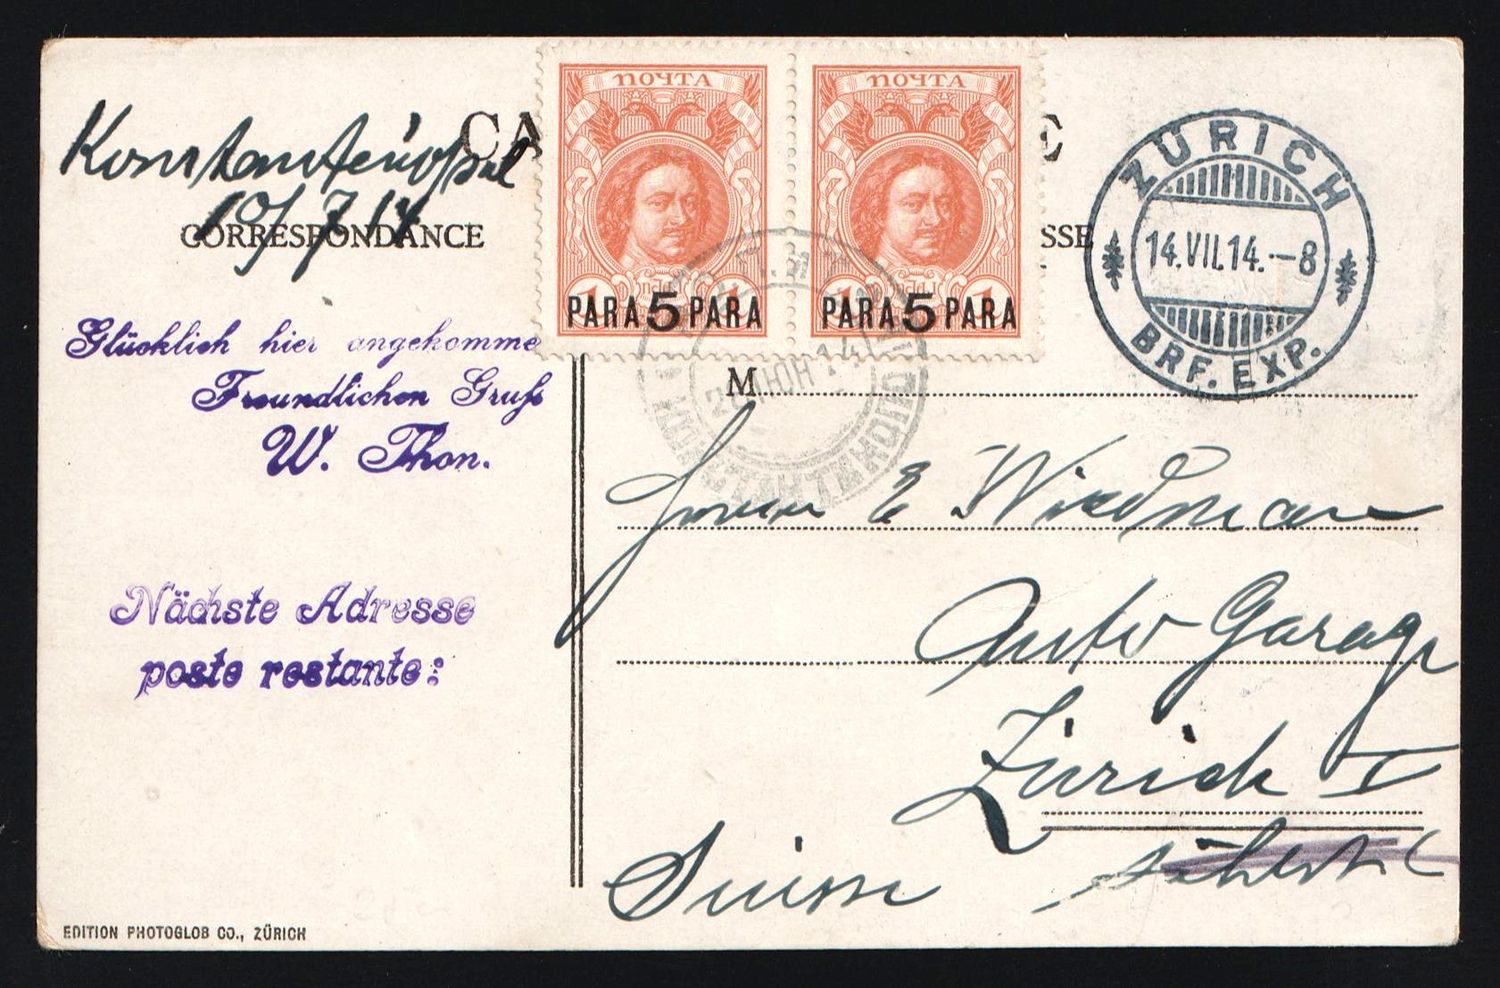 Konstantinopel
10/7 14
CA
E
CORRESPONDANCE
SSE
ПОЧТА
ПОЧТА
PARA 5 PARA
PARA 5 PARA
ZÜRICH
14.VII.14.–8
BRF. EXP.
Glücklich hier angekomme
Freundlichen Gruß
W. Thon.
Nächste Adresse
poste restante:
M
Herrn E Wiedman
Auto Garage
Zürich I
Suisse
EDITION PHOTOGLOB CO., ZÜRICH